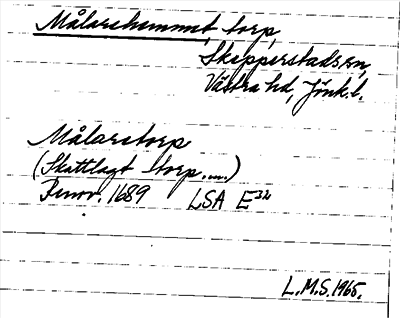 Målarehemmet, torp,
Skepperstads sn,
Västra hd, Jönk. l.
Målaretorp
(Skattlagt torp....)
Renov. 1689 LSA E³²
L.M.S. 1965.